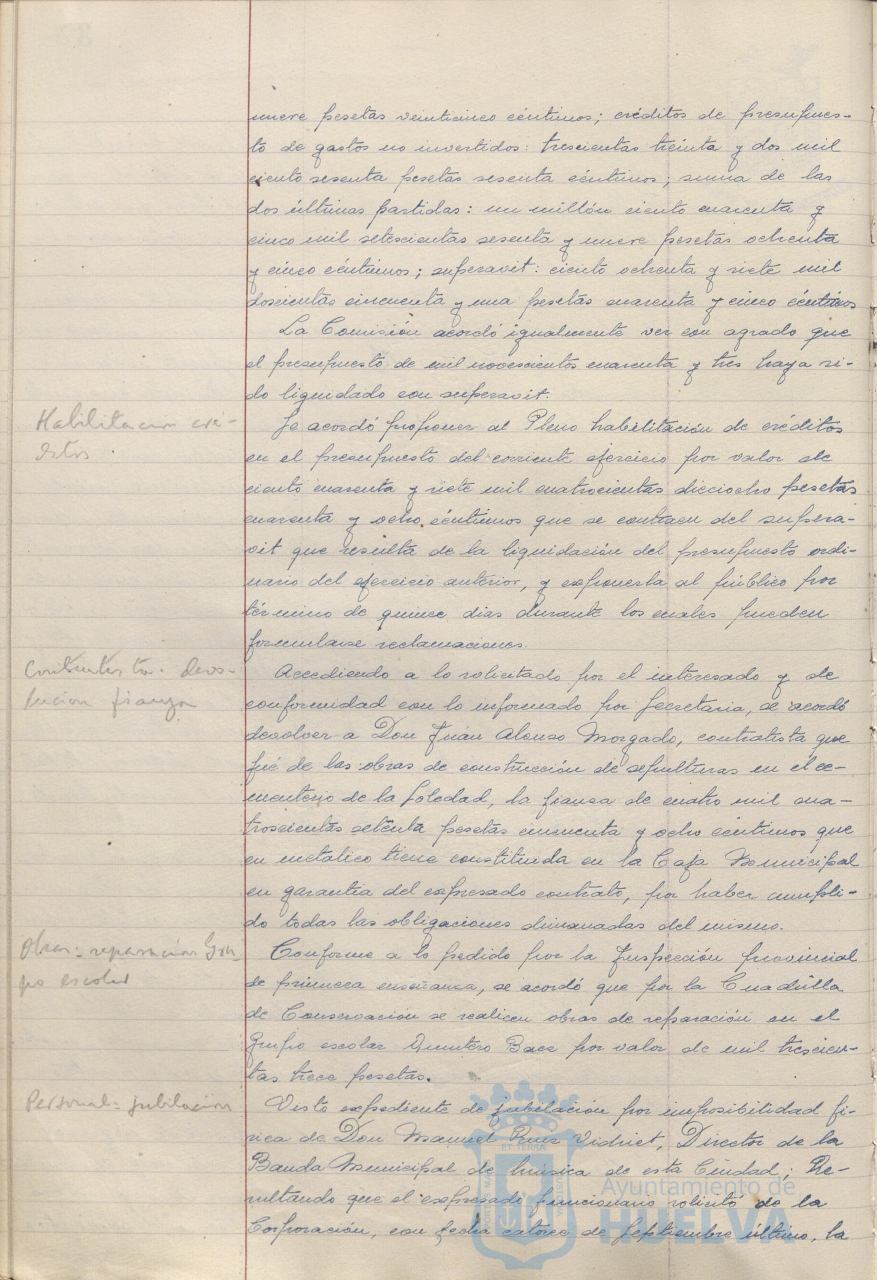 nueve pesetas veinticinco céntimos; créditos de presupues-
to de gastos no invertidos: trescientas treinta y dos mil
ciento sesenta pesetas sesenta céntimos; suma de las
dos últimas partidas: un millón ciento cuarenta y
cinco mil setecientas sesenta y nueve pesetas ochenta
y cinco céntimos; superavit: ciento ochenta y siete mil
doscientas cincuenta y una pesetas cuarenta y cinco céntimos
La Comisión acordó igualmente ver con agrado que
el presupuesto de mil novecientos cuarenta y tres haya si-
do liquidado con superavit.
Habilitacion cré-
ditos
Se acordó proponer al Pleno habilitación de créditos
en el presupuesto del corriente ejercicio por valor de
ciento cuarenta y siete mil cuatrocientas dieciocho pesetas
cuarenta y ocho céntimos que se contraen del supera-
vit que resulta de la liquidación del presupuesto ordi-
nario del ejercicio anterior, y exponerla al público por
término de quince dias durante los cuales pueden
formularse reclamaciones.
Contratista. devo-
lucion fianza
Accediendo a lo solicitado por el interesado y de
conformidad con lo informado por Secretaria, se acordó
devolver a Don Juan Alonso Morgado, contratista que
fué de las obras de construcción de sepulturas en el ce-
menterio de la Soledad, la fiansa de cuatro mil cua-
troscientas setenta pesetas cincuenta y ocho céntimos que
en metálico tiene constituida en la Caja Municipal
en garantia del expresado contrato, por haber cumpli-
do todas las obligaciones dimanadas del mismo.
Obras= reparación Gru-
po escolar
Conforme a lo pedido por la Inspección provincial
de primera enseñanza, se acordó que por la Cuadrilla
de Conservación se realicen obras de reparación en el
Grupo escolar Quintero Baez por valor de mil trescien-
tas trece pesetas.
Personal= jubilación
Visto expediente de jubilación por imposibilidad fí-
sica de Don Manuel Ruiz Vidriet, Director de la
Banda Municipal de música de esta Ciudad; Re-
sultando que el expresado funcionario solicitó de la
Corporación, con fecha catorce de Septiembre último, la
Ayuntamiento de
HUELVA